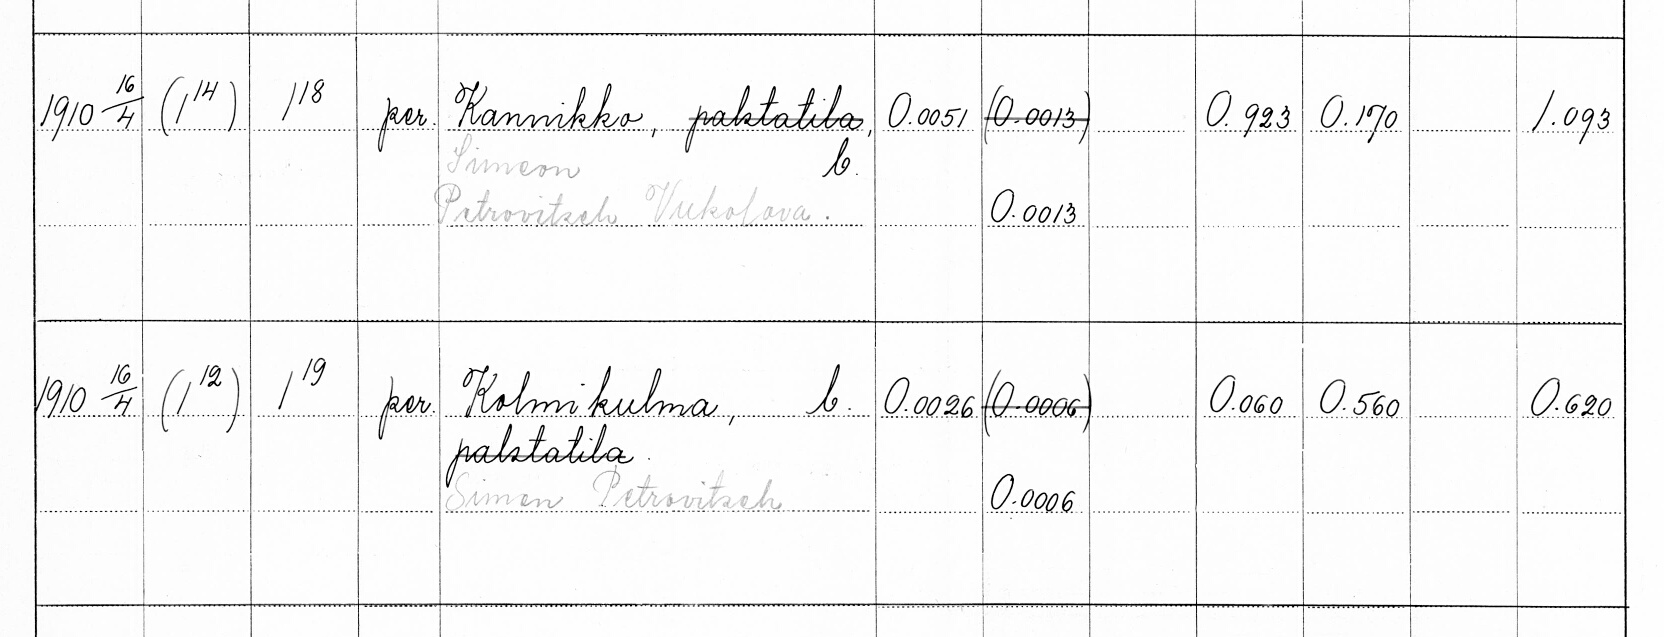 1910 16/4 (1¹⁴) 1¹⁸ per. Kannikko, palstatila, 0.0051 (0.0013) 0.923 0.170 1.093
Simeon b.
Petrovitsch Vukolova. 0.0013
1910 16/4 (1¹²) 1¹⁹ per. Kolmikulma, b. 0.0026 (0.0006) 0.060 0.560 0.620
palstatila.
Simen Petrovitsch 0.0006